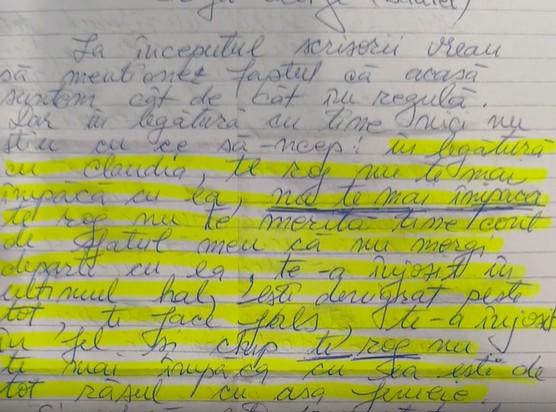 La începutul scrisorii vreau
să mentionez faptul că acasă
suntem cât de cât în regulă.
Dar în legătură cu tine nici nu
știu cu ce să-ncep: în legătură
cu claudia, te rog nu te mai
împăca cu ea, nu te mai împaca
te rog nu te merită tine cont
de sfatul meu că nu mergi
departe cu ea, te-a înjosit în
ultimul hal, ești denigrat peste
tot, te face fals, te-a înjosit
în fel în chip te rog nu
te mai împăca cu ea ești de
tot râsul cu așa femeie.